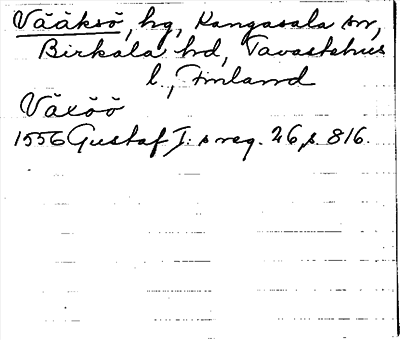 Vääksö, hg, Kangasala sn,
Birkala hd, Tavastehus
l., Finland
Växöö
1556 Gustaf I:s reg. 26, s. 816.